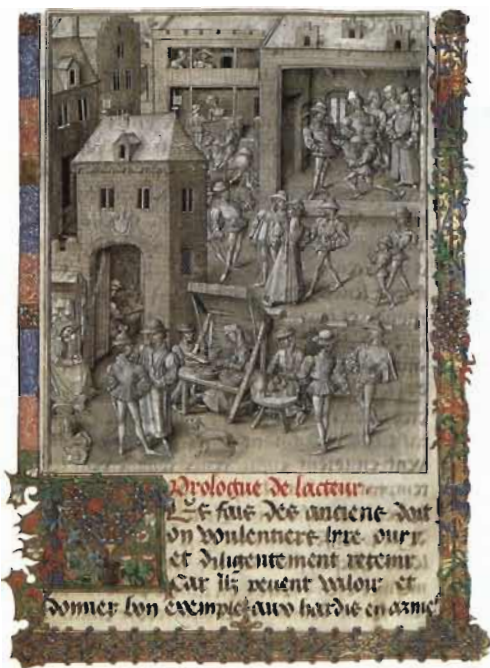 Prologue de lacteur
Les fais des anciens doit
on voulentiers lyre ouyr
et diligentement retenir
Car ilz peuent valoir et
donner bon exemple aux hardis en armes